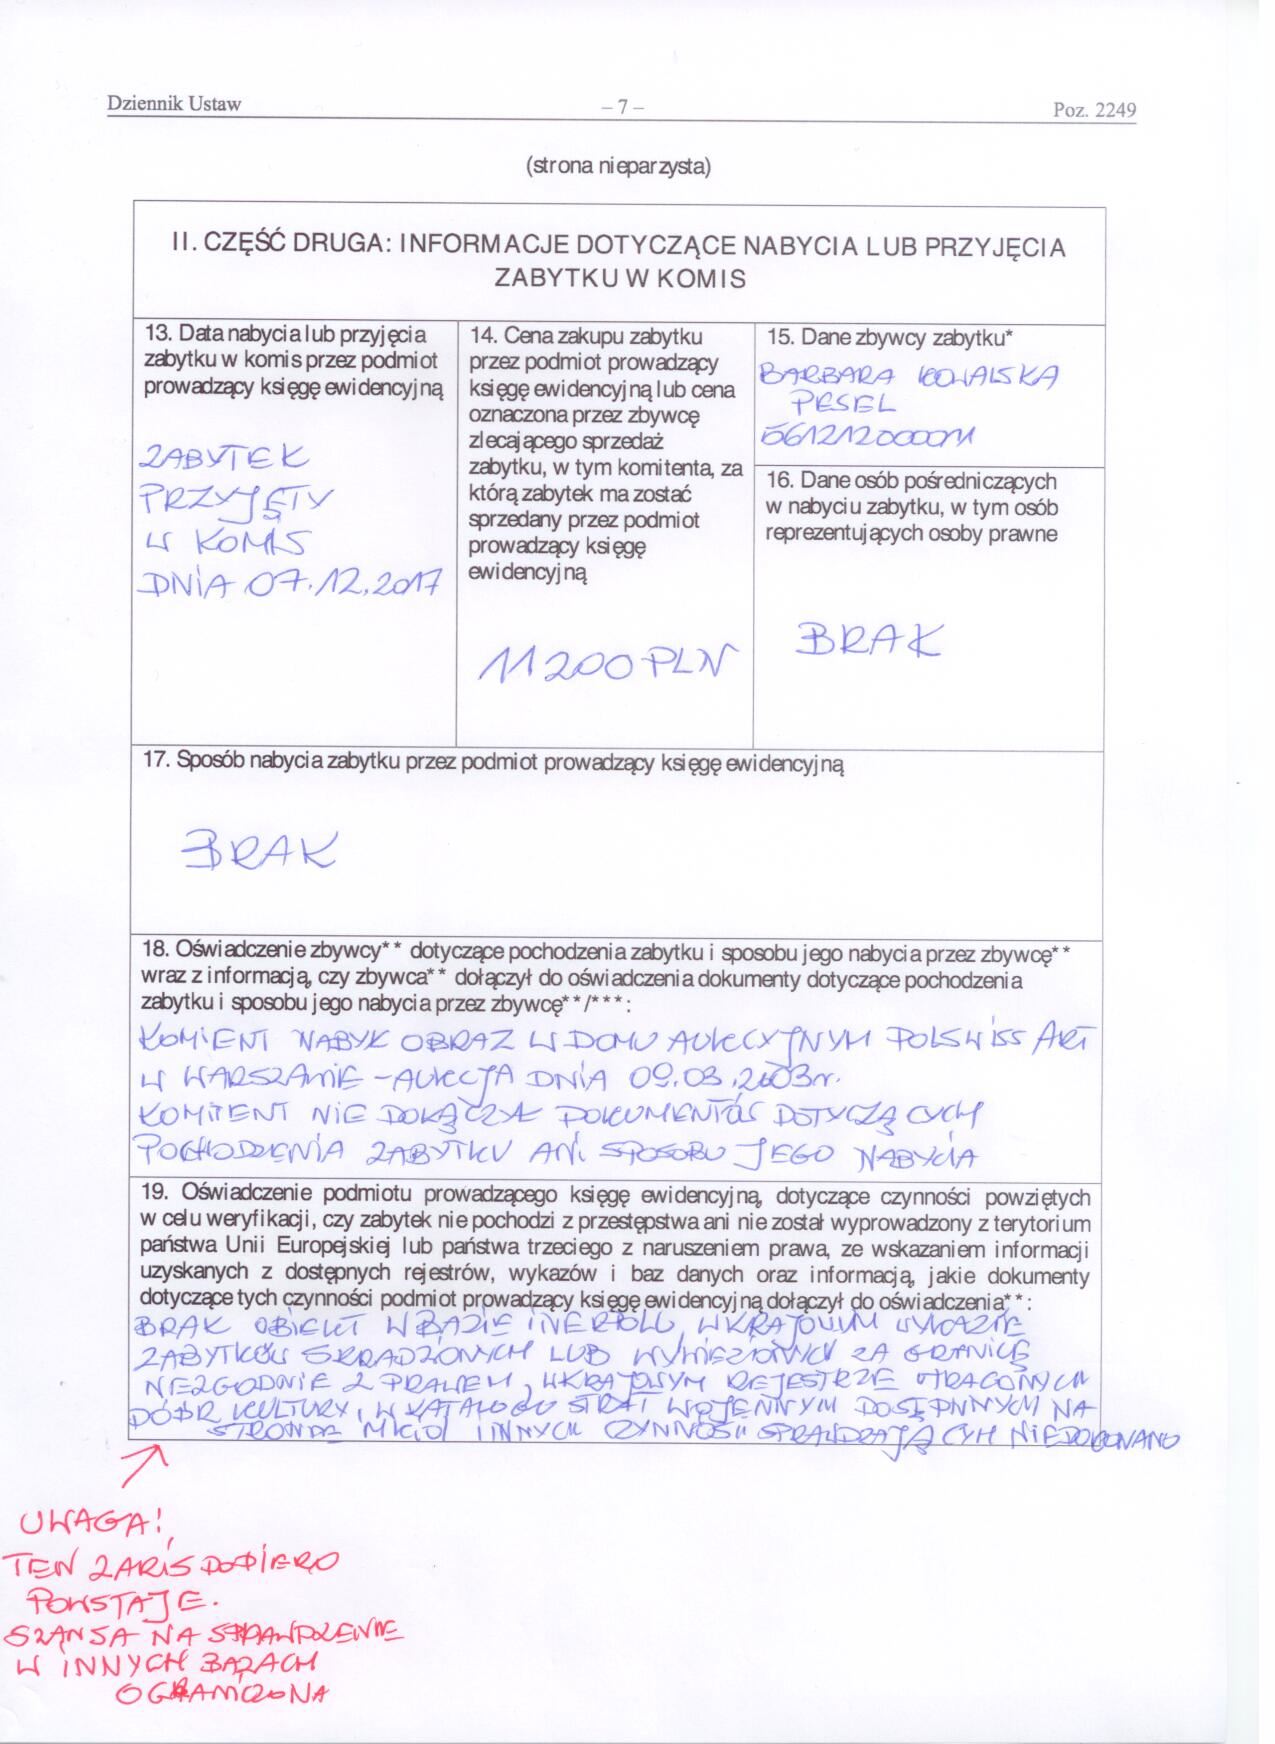 Dziennik Ustaw – 7 – Poz. 2249
(strona nieparzysta)
II. CZĘŚĆ DRUGA: INFORMACJE DOTYCZĄCE NABYCIA LUB PRZYJĘCIA
ZABYTKU W KOMIS
13. Data nabycia lub przyjęcia
zabytku w komis przez podmiot
prowadzący księgę ewidencyjną
ZABYTEK
PRZYJĘTY
W KOMIS
DNIA 07.12.2017
14. Cena zakupu zabytku
przez podmiot prowadzący
księgę ewidencyjną lub cena
oznaczona przez zbywcę
zlecającego sprzedaż
zabytku, w tym komitenta, za
którą zabytek ma zostać
sprzedany przez podmiot
prowadzący księgę
ewidencyjną
11200 PLN
15. Dane zbywcy zabytku*
BARBARA KOWALSKA
PESEL
56121200001
16. Dane osób pośredniczących
w nabyciu zabytku, w tym osób
reprezentujących osoby prawne
BRAK
17. Sposób nabycia zabytku przez podmiot prowadzący księgę ewidencyjną
BRAK
18. Oświadczenie zbywcy** dotyczące pochodzenia zabytku i sposobu jego nabycia przez zbywcę**
wraz z informacją, czy zbywca** dołączył do oświadczenia dokumenty dotyczące pochodzenia
zabytku i sposobu jego nabycia przez zbywcę**/***:
KOMIENT NABYŁ OBRAZ W DOMU AUKCYJNYM POLSWISS ART
W WARSZAWIE – AUKCJA DNIA 09.03.2003r.
KOMITENT NIE DOŁĄCZYŁ DOKUMENTÓW DOTYCZĄCYCH
POCHODZENIA ZABYTKU ANI SPOSOBU JEGO NABYCIA
19. Oświadczenie podmiotu prowadzącego księgę ewidencyjną, dotyczące czynności powziętych
w celu weryfikacji, czy zabytek nie pochodzi z przestępstwa ani nie został wyprowadzony z terytorium
państwa Unii Europejskiej lub państwa trzeciego z naruszeniem prawa, ze wskazaniem informacji
uzyskanych z dostępnych rejestrów, wykazów i baz danych oraz informacją, jakie dokumenty
dotyczące tych czynności podmiot prowadzący księgę ewidencyjną dołączył do oświadczenia**:
BRAK OBIEKT W BAZIE INERPOLU, W KRAJOWYM WYKAZIE
ZABYTKÓW SKRADZIONYCH LUB WYWIEZIONYCH ZA GRANICĘ
NIEZGODNIE Z PRAWEM, W KRAJOWYM REJESTRZE UTRACONYCH
DÓBR KULTURY, W KATALOGU STRAT WOJENNYM DOSTĘPNNYCH NA
STRONIE MKiDN INNYCH CZYNNOŚCI SPRAWDZAJĄCYCH NIE DOKONANO
UWAGA!
TEN ZAPIS DOPIERO
POWSTAJE.
SZANSA NA SPRAWDZENIE
W INNYCH BAZACH
OGRANICZONA